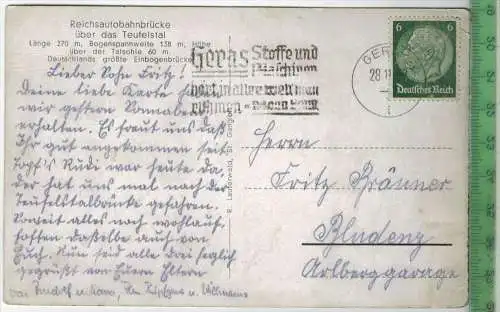 Reichsautobahnbrücke
über das Teufelstal
Länge 270 m, Bogenspannweite 138 m, Höhe
über der Talsohle 60 m.
Deutschlands größte Einbogenbrücke
Geras Stoffe und
Maschinen
hört in aller Welt man
rühmen
GERA
28.11
6 6
Deutsches Reich
Lieber Sohn Fritz!
deine liebe Karte haben
wir gestern Sonnabend
erhalten. Es freut uns daß
Ihr gut angekommen seit
Topf's Rudi war heute da,
der hat uns mal nach der
Teufelstalbrücke gefahren.
Soweit alles noch wohlauf,
hoffen daßelbe auch von
Euch. Nun seid alle Drei herzlich
gegrüßt von Euern Eltern
Herrn
Fritz Bränner
Bludenz
Arlberggarage